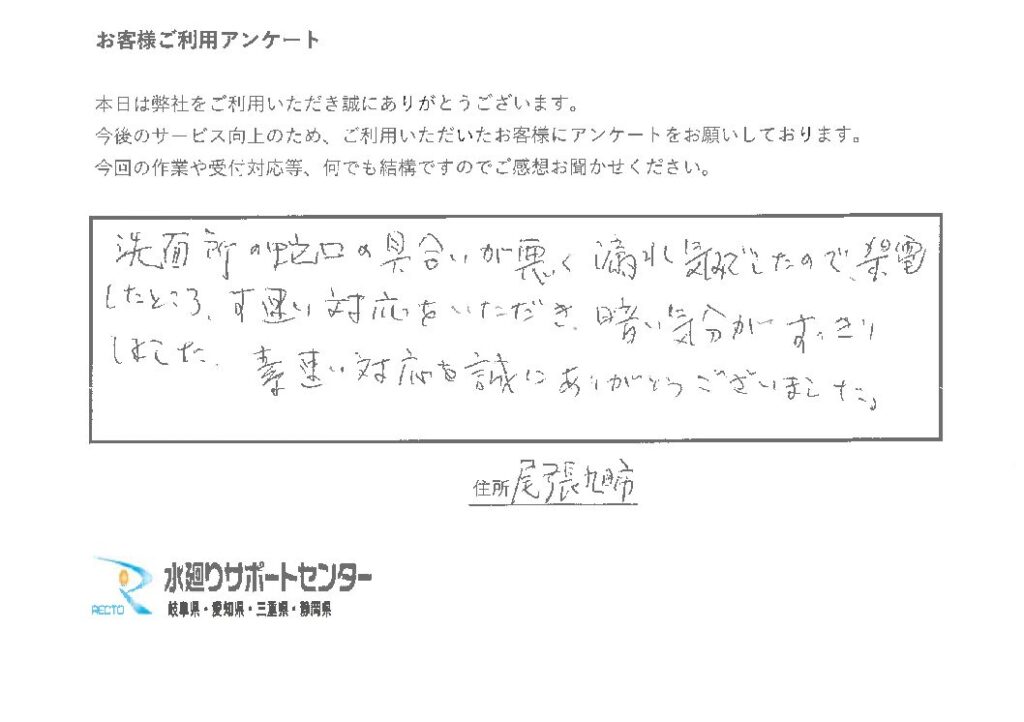 お客様ご利用アンケート
本日は弊社をご利用いただき誠にありがとうございます。
今後のサービス向上のため、ご利用いただいたお客様にアンケートをお願いしております。
今回の作業や受付対応等、何でも結構ですのでご感想お聞かせください。
洗面所の蛇口の具合いが悪く 滴れ気味でしたので、架電
したところ、す速い対応をいただき、暗い気分がすっきり
しました。素速い対応を誠にありがとうございました。
住所 尾張旭市
水廻りサポートセンター
RECTO 岐阜県・愛知県・三重県・静岡県